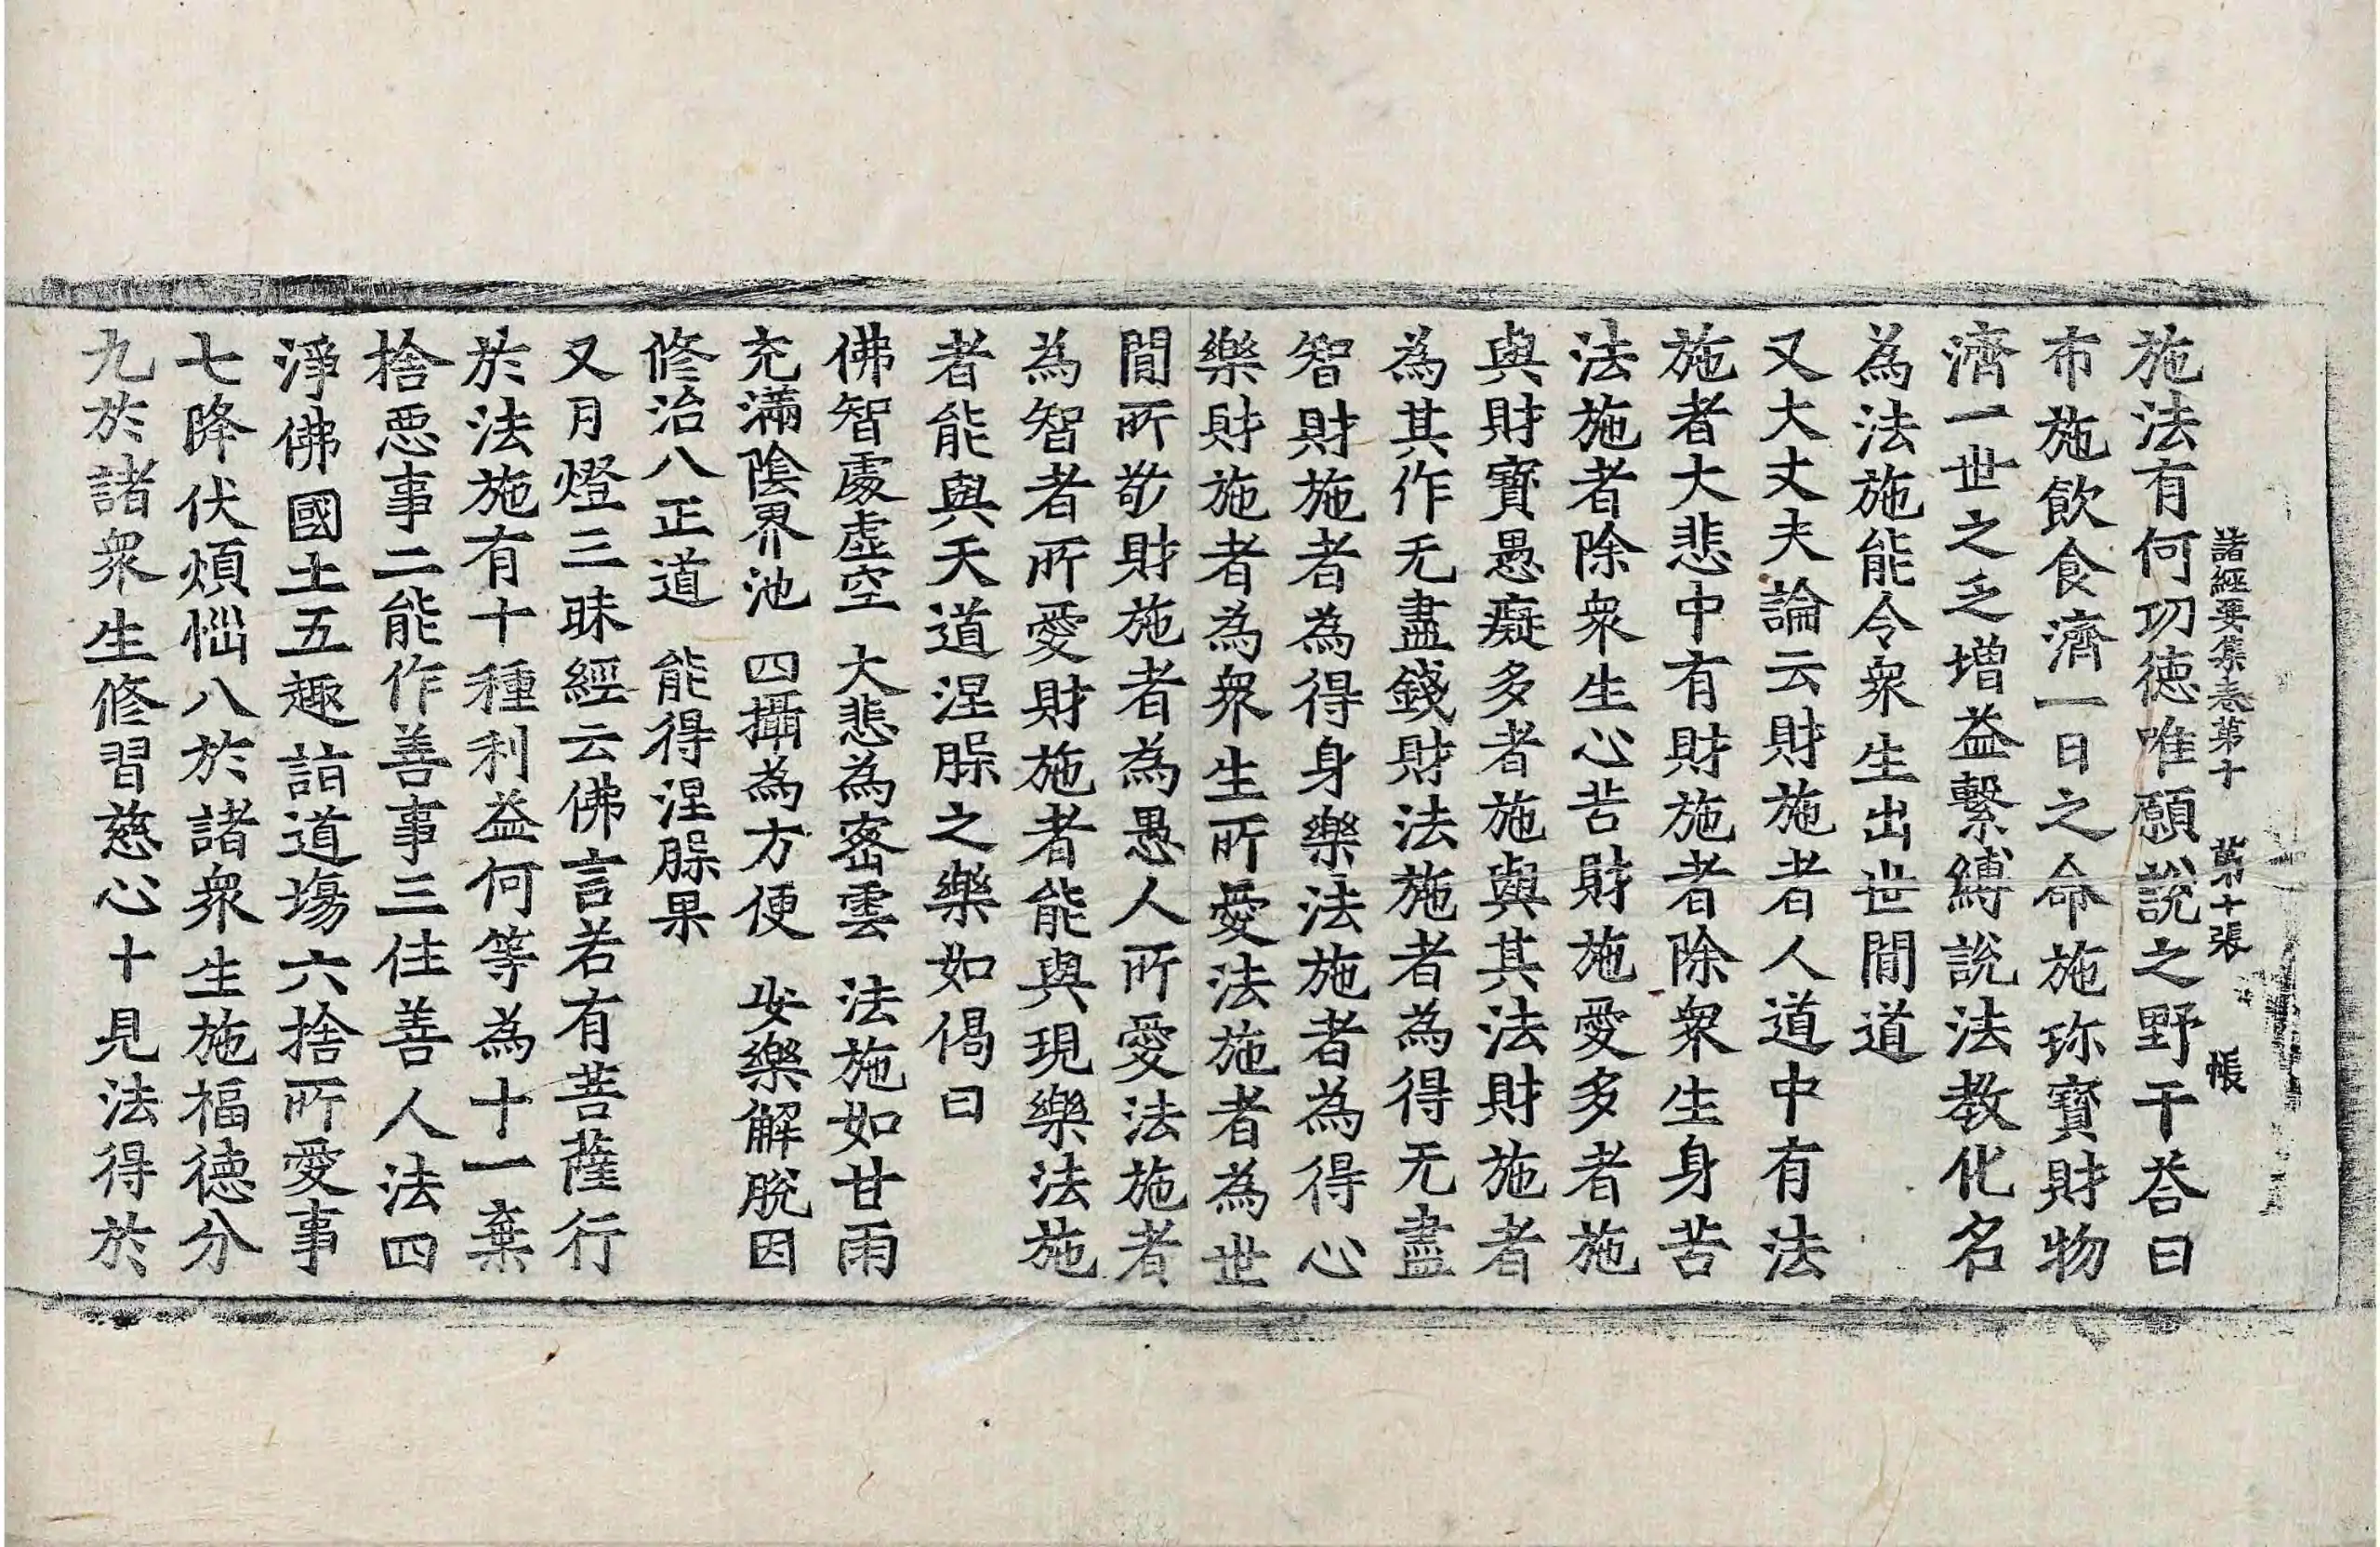 諸經要集卷第十 第十張 帳
施法有何功德唯願說之野干荅曰
布施飮食濟一日之命施珎寶財物
濟一世之乏增益繫縛說法教化名
為法施能令衆生出世間道
又大丈夫論云財施者人道中有法
施者大悲中有財施者除衆生身苦
法施者除衆生心苦財施愛多者施
與財寶愚癡多者施與其法財施者
為其作无盡錢財法施者為得无盡
智財施者為得身樂法施者為得心
樂財施者為衆生所愛法施者為世
間所敬財施者為愚人所愛法施者
為智者所愛財施者能與現樂法施
者能與天道涅槃之樂如偈曰
佛智處虛空 大悲為密雲 法施如甘雨
充滿陰界池 四攝為方便 安樂解脫因
修治八正道 能得涅槃果
又月燈三昧經云佛言若有菩薩行
於法施有十種利益何等為十一棄
捨惡事二能作善事三住善人法四
淨佛國土五趣詣道場六捨所愛事
七降伏煩惱八於諸衆生施福德分
九於諸衆生修習慈心十見法得於